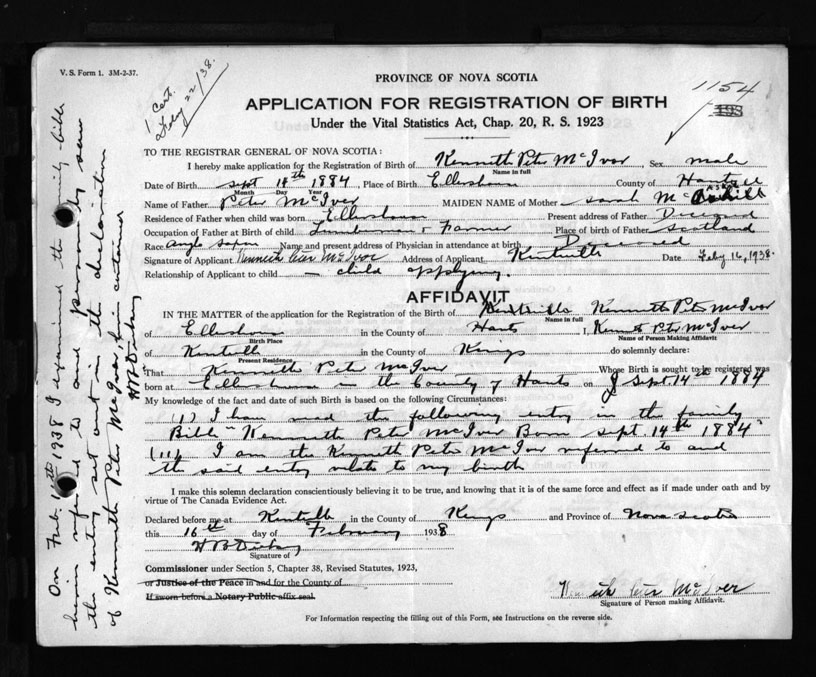 V. S. Form 1. 3M-2-37.
1 Cert.
Feby 22/38.
1154
193
PROVINCE OF NOVA SCOTIA
APPLICATION FOR REGISTRATION OF BIRTH
Under the Vital Statistics Act, Chap. 20, R. S. 1923
TO THE REGISTRAR GENERAL OF NOVA SCOTIA:
I hereby make application for the Registration of Birth of Kenneth Peter McIvor, Sex male
Name in full
Date of Birth Sept 14th 1884, Place of Birth Ellershouse County of Hants
Month Day Year
Name of Father Peter McIver MAIDEN NAME of Mother Sarah Mc
Residence of Father when child was born Ellershouse Present address of Father Deceased
Occupation of Father at Birth of child Lumberman & Farmer Place of birth of Father Scotland
Race anglo saxon Name and present address of Physician in attendance at birth Deceased
Signature of Applicant Kenneth Peter McIvor Address of Applicant Kentville Date Feby 16, 1938.
Relationship of Applicant to child — child applying.
AFFIDAVIT
IN THE MATTER of the application for the Registration of Birth of Kentville Kenneth Peter McIvor
Name in full
of Ellershouse in the County of Hants I, Kenneth Peter McIver
Birth Place Name of Person Making Affidavit
of Kentville in the County of Kings do solemnly declare:
Present Residence
That Kenneth Peter McIver Whose Birth is sought to be registered was
born at Ellershouse in the County of Hants on Sept 14th 1884
My knowledge of the fact and date of such Birth is based on the following Circumstances:
(1) I have read the following entry in the family
Bible "Kenneth Peter McIver Born Sept 14th 1884"
(11) I am the Kenneth Peter McIver referred to and
the said entry relate to my birth
I make this solemn declaration conscientiously believing it to be true, and knowing that it is of the same force and effect as if made under oath and by
virtue of The Canada Evidence Act.
Declared before me at Kentville in the County of Kings and Province of Nova Scotia
this 16th day of February 1938
Signature of
Commissioner under Section 5, Chapter 38, Revised Statutes, 1923,
or Justice of the Peace in and for the County of
If sworn before a Notary Public affix seal.
Kenneth Peter McIver
Signature of Person making Affidavit.
For Information respecting the filling out of this Form, see Instructions on the reverse side.
On Feb. 16th 1938 I examined the family bible
herein referred to and personally saw
the entry set out in the declaration
of Kenneth Peter McIver, herein contained